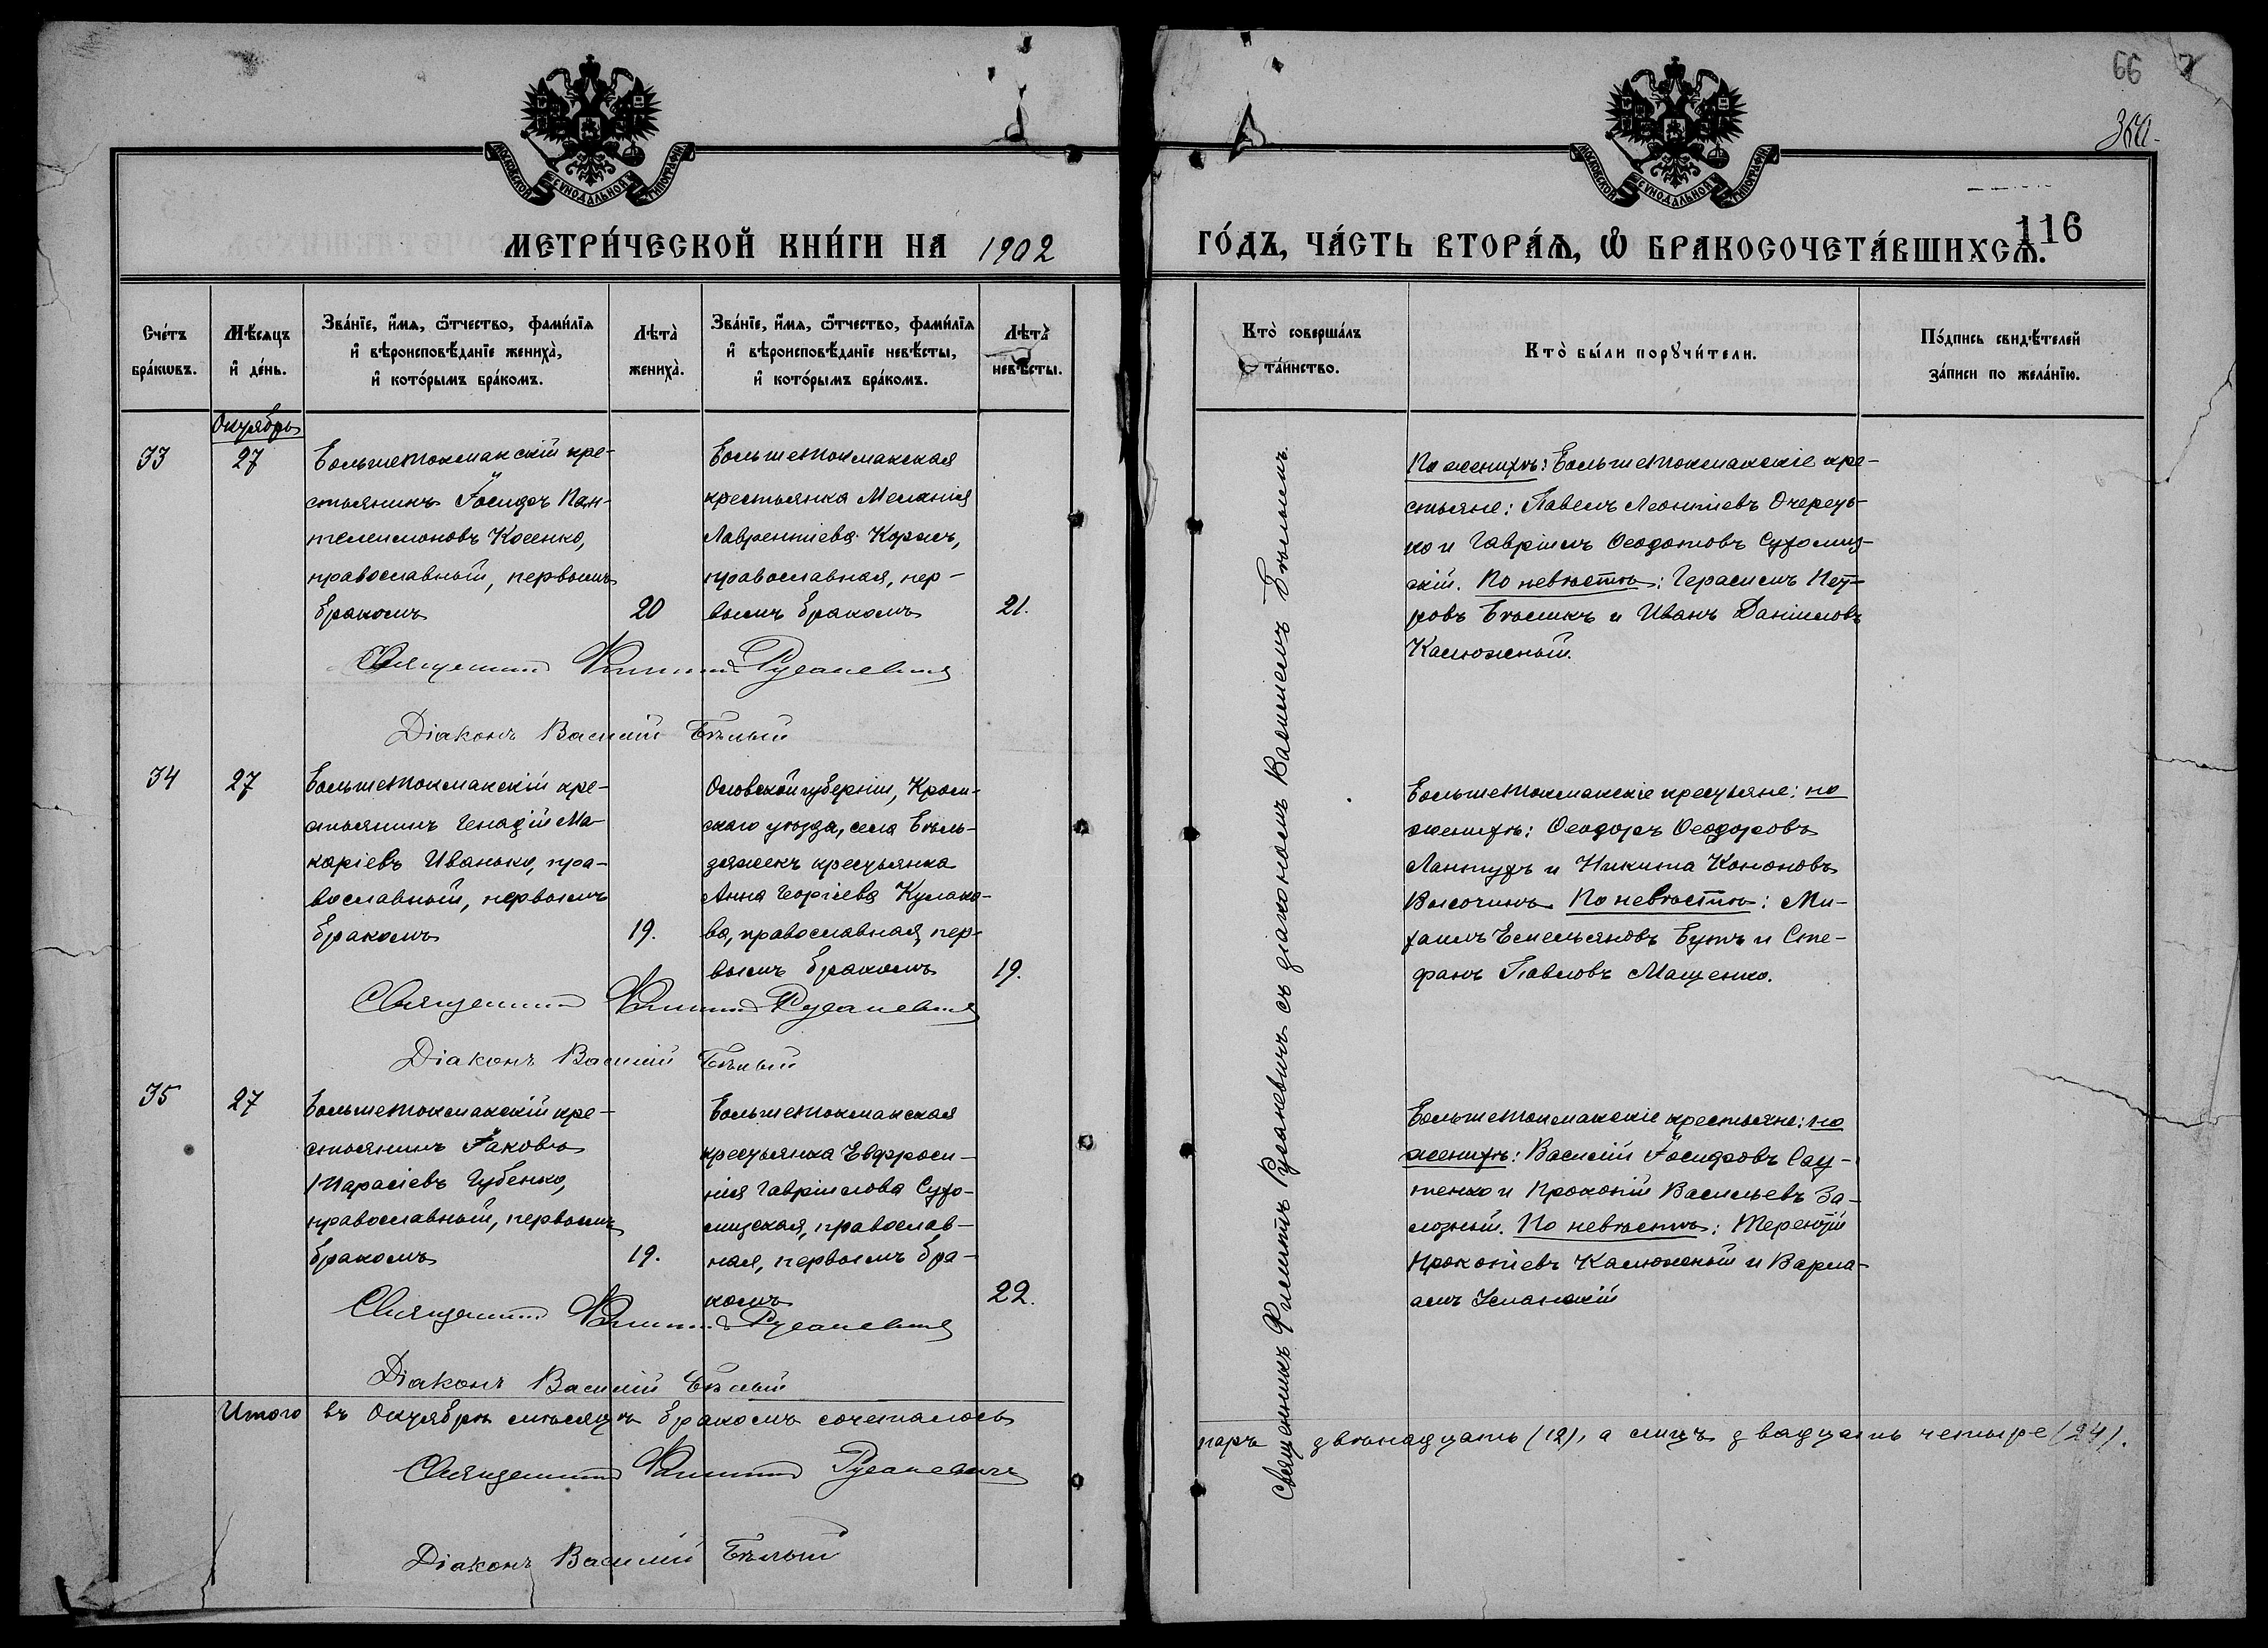 66
116
МОСКОВСКОЙ СѴНОДАЛЬНОЙ ТИПОГРАФІИ
МОСКОВСКОЙ СѴНОДАЛЬНОЙ ТИПОГРАФІИ
МЕТРИ́ЧЕСКОЙ КНИ́ГИ НА 1902
ГО́ДЪ, ЧА́СТЬ ВТОРА́Ѧ, Ѡ҆ БРАКОСОЧЕТА́ВШИХСѦ.
Сче́тъ
бра́кѡвъ.
Мѣ́сяцъ
и҆ де́нь.
Зва́нїе, и҆́мя, ѻ҆́тчество, фами́лїя
и҆ вѣроисповѣ́данїе жениха̀,
и҆ кото́рымъ бра́комъ.
Лѣта̀
жениха̀.
Зва́нїе, и҆́мя, ѻ҆́тчество, фами́лїя
и҆ вѣроисповѣ́данїе невѣ́сты,
и҆ кото́рымъ бра́комъ.
Лѣта̀
невѣ́сты.
Кто̀ соверша́лъ
та́инство.
Кто̀ бы́ли порꙋчи́тели.
По́дпись свидѣ́телей
за́писи по жела́нїю.
Октябрь
33
27
Большетокмакскій кре-
стьянинъ Іосифъ Пан-
телеимоновъ Косенко,
православный, первымъ
бракомъ
20
Большетокмакская
крестьянка Меланія
Лаврентіева Коржъ,
православная, пер-
вымъ бракомъ
21.
По женихѣ: Большетокмакскіе кре-
стьяне: Павелъ Леонтіевъ Очереть-
ко и Гавріилъ Ѳеодотовъ Сухомлин-
скій. По невѣстѣ: Герасимъ Пет-
ровъ Бѣликъ и Иванъ Даніиловъ
Калюжный.
Священникъ Филиппъ Русаневичъ
Діаконъ Василій Бѣлый
34
27
Большетокмакскій кре-
стьянинъ Генадій Ма-
каріевъ Иванько, пра-
вославный, первымъ
бракомъ
19.
Орловской губерніи, Кром-
скаго уѣзда, села Бѣль-
дяжекъ крестьянка
Анна Георгіева Кулако-
ва, православная, пер-
вымъ бракомъ
19.
Большетокмакскіе крестьяне: по
женихѣ: Ѳеодоръ Ѳеодоровъ
Лантухъ и Никита Кононовъ
Высочинъ. По невѣстѣ: Ми-
хаилъ Емельяновъ Бутъ и Сте-
фанъ Павловъ Мащенко.
Священникъ Филиппъ Русаневичъ
Діаконъ Василій Бѣлый
35
27
Большетокмакскій кре-
стьянинъ Іаковъ
Тарасіевъ Губенко,
православный, первымъ
бракомъ
19.
Большетокмакская
крестьянка Евфроси-
нія Гавріилова Сухо-
млинская, православ-
ная, первымъ бра-
комъ
22.
Большетокмакскіе крестьяне: по
женихѣ: Василій Іосифовъ Сау-
тенко и Прокопій Васильевъ За-
лозный. По невѣстѣ: Терентій
Прокопіевъ Калюжный и Варла-
амъ Усманскій
Священникъ Филиппъ Русаневичъ
Діаконъ Василій Бѣлый
Священникъ Филиппъ Русаневичъ съ діакономъ Василіемъ Бѣлымъ.
Итого въ Октябрѣ мѣсяцѣ бракомъ сочеталось
паръ двѣнадцать (12), а лицъ двадцать четыре (24).
Священникъ Филиппъ Русаневичъ
Діаконъ Василій Бѣлый